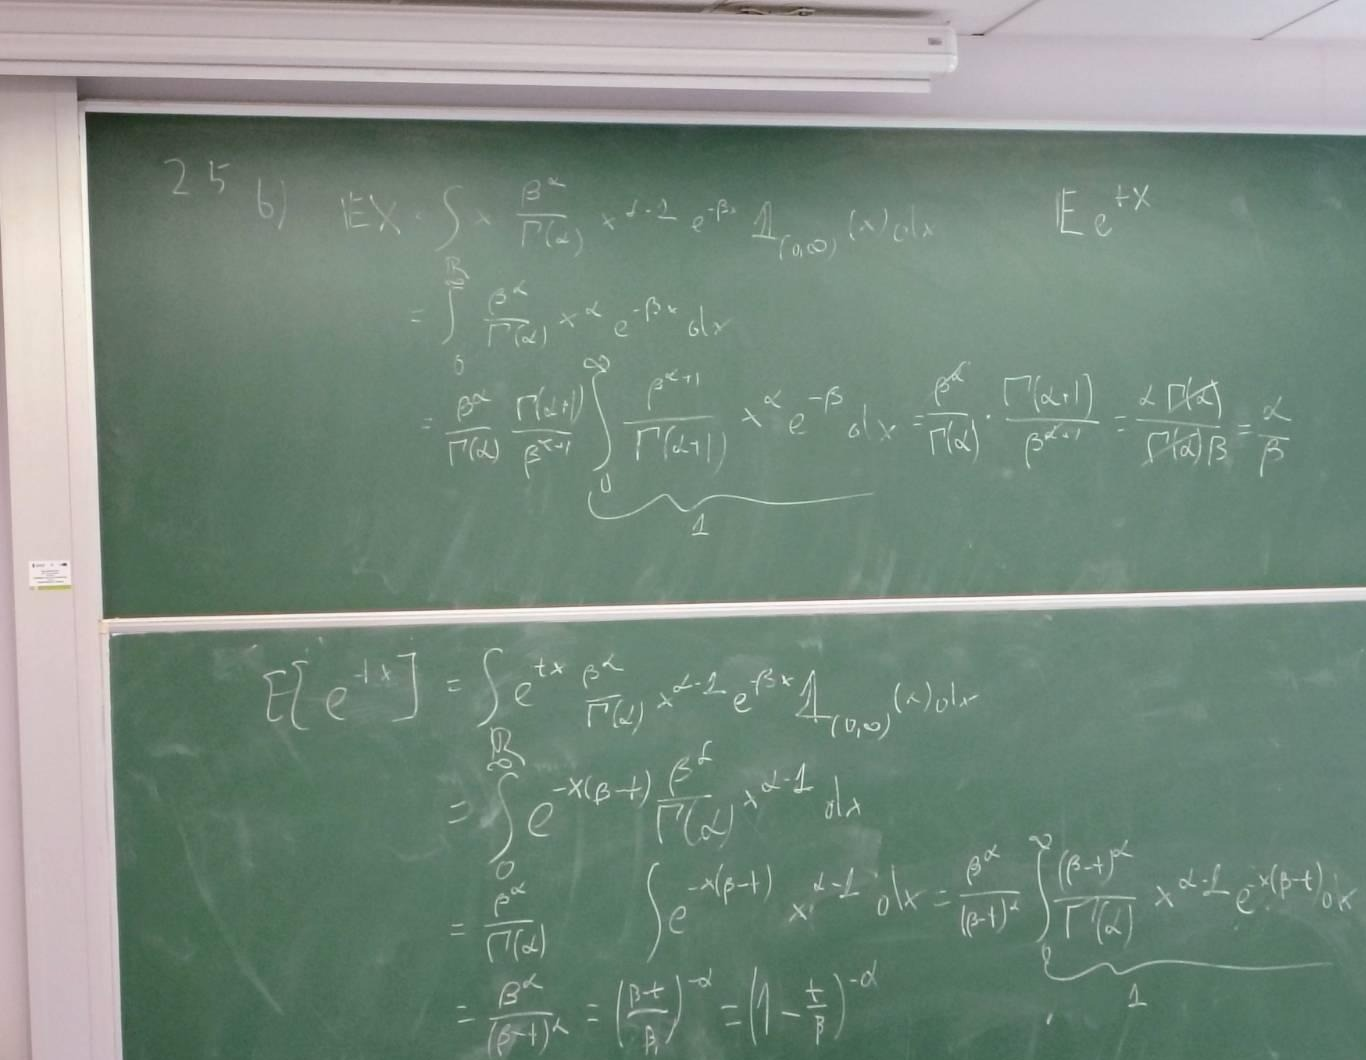 25 b) EX = ∫_ℝ x β^α/Γ(α) x^{α-1} e^{-βx} 𝟙_{(0,∞)}(x) dx
E e^{tX}
= ∫_0^∞ β^α/Γ(α) x^α e^{-βx} dx
= β^α/Γ(α) Γ(α+1)/β^{α+1} ∫_0^∞ β^{α+1}/Γ(α+1) x^α e^{-β} dx = β^α/Γ(α) · Γ(α+1)/β^{α+1} = α Γ(α)/Γ(α)β = α/β
1
E[e^{tx}] = ∫_ℝ e^{tx} β^α/Γ(α) x^{α-1} e^{-βx} 𝟙_{(0,∞)}(x) dx
= ∫_0^∞ e^{-x(β-t)} β^α/Γ(α) x^{α-1} dx
= β^α/Γ(α) ∫ e^{-x(β-t)} x^{α-1} dx = β^α/(β-t)^α ∫_0^∞ (β-t)^α/Γ(α) x^{α-1} e^{-x(β-t)} dx
1
= β^α/(β-t)^α = (β-t/β)^{-α} = (1 - t/β)^{-α}